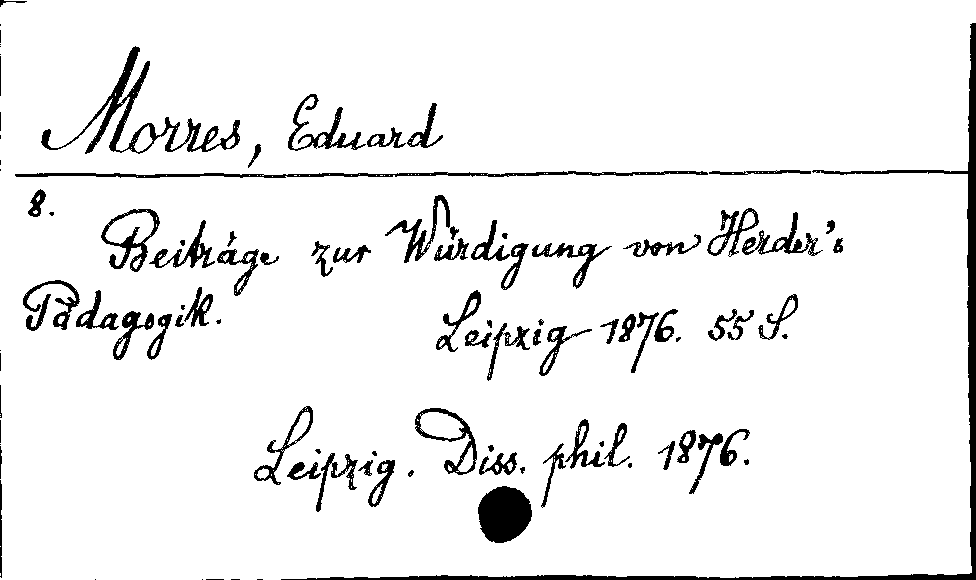 Morres, Eduard
8.
Beiträge zur Würdigung von Herder's
Pädagogik.
Leipzig 1876. 55 S.
Leipzig. Diss. phil. 1876.